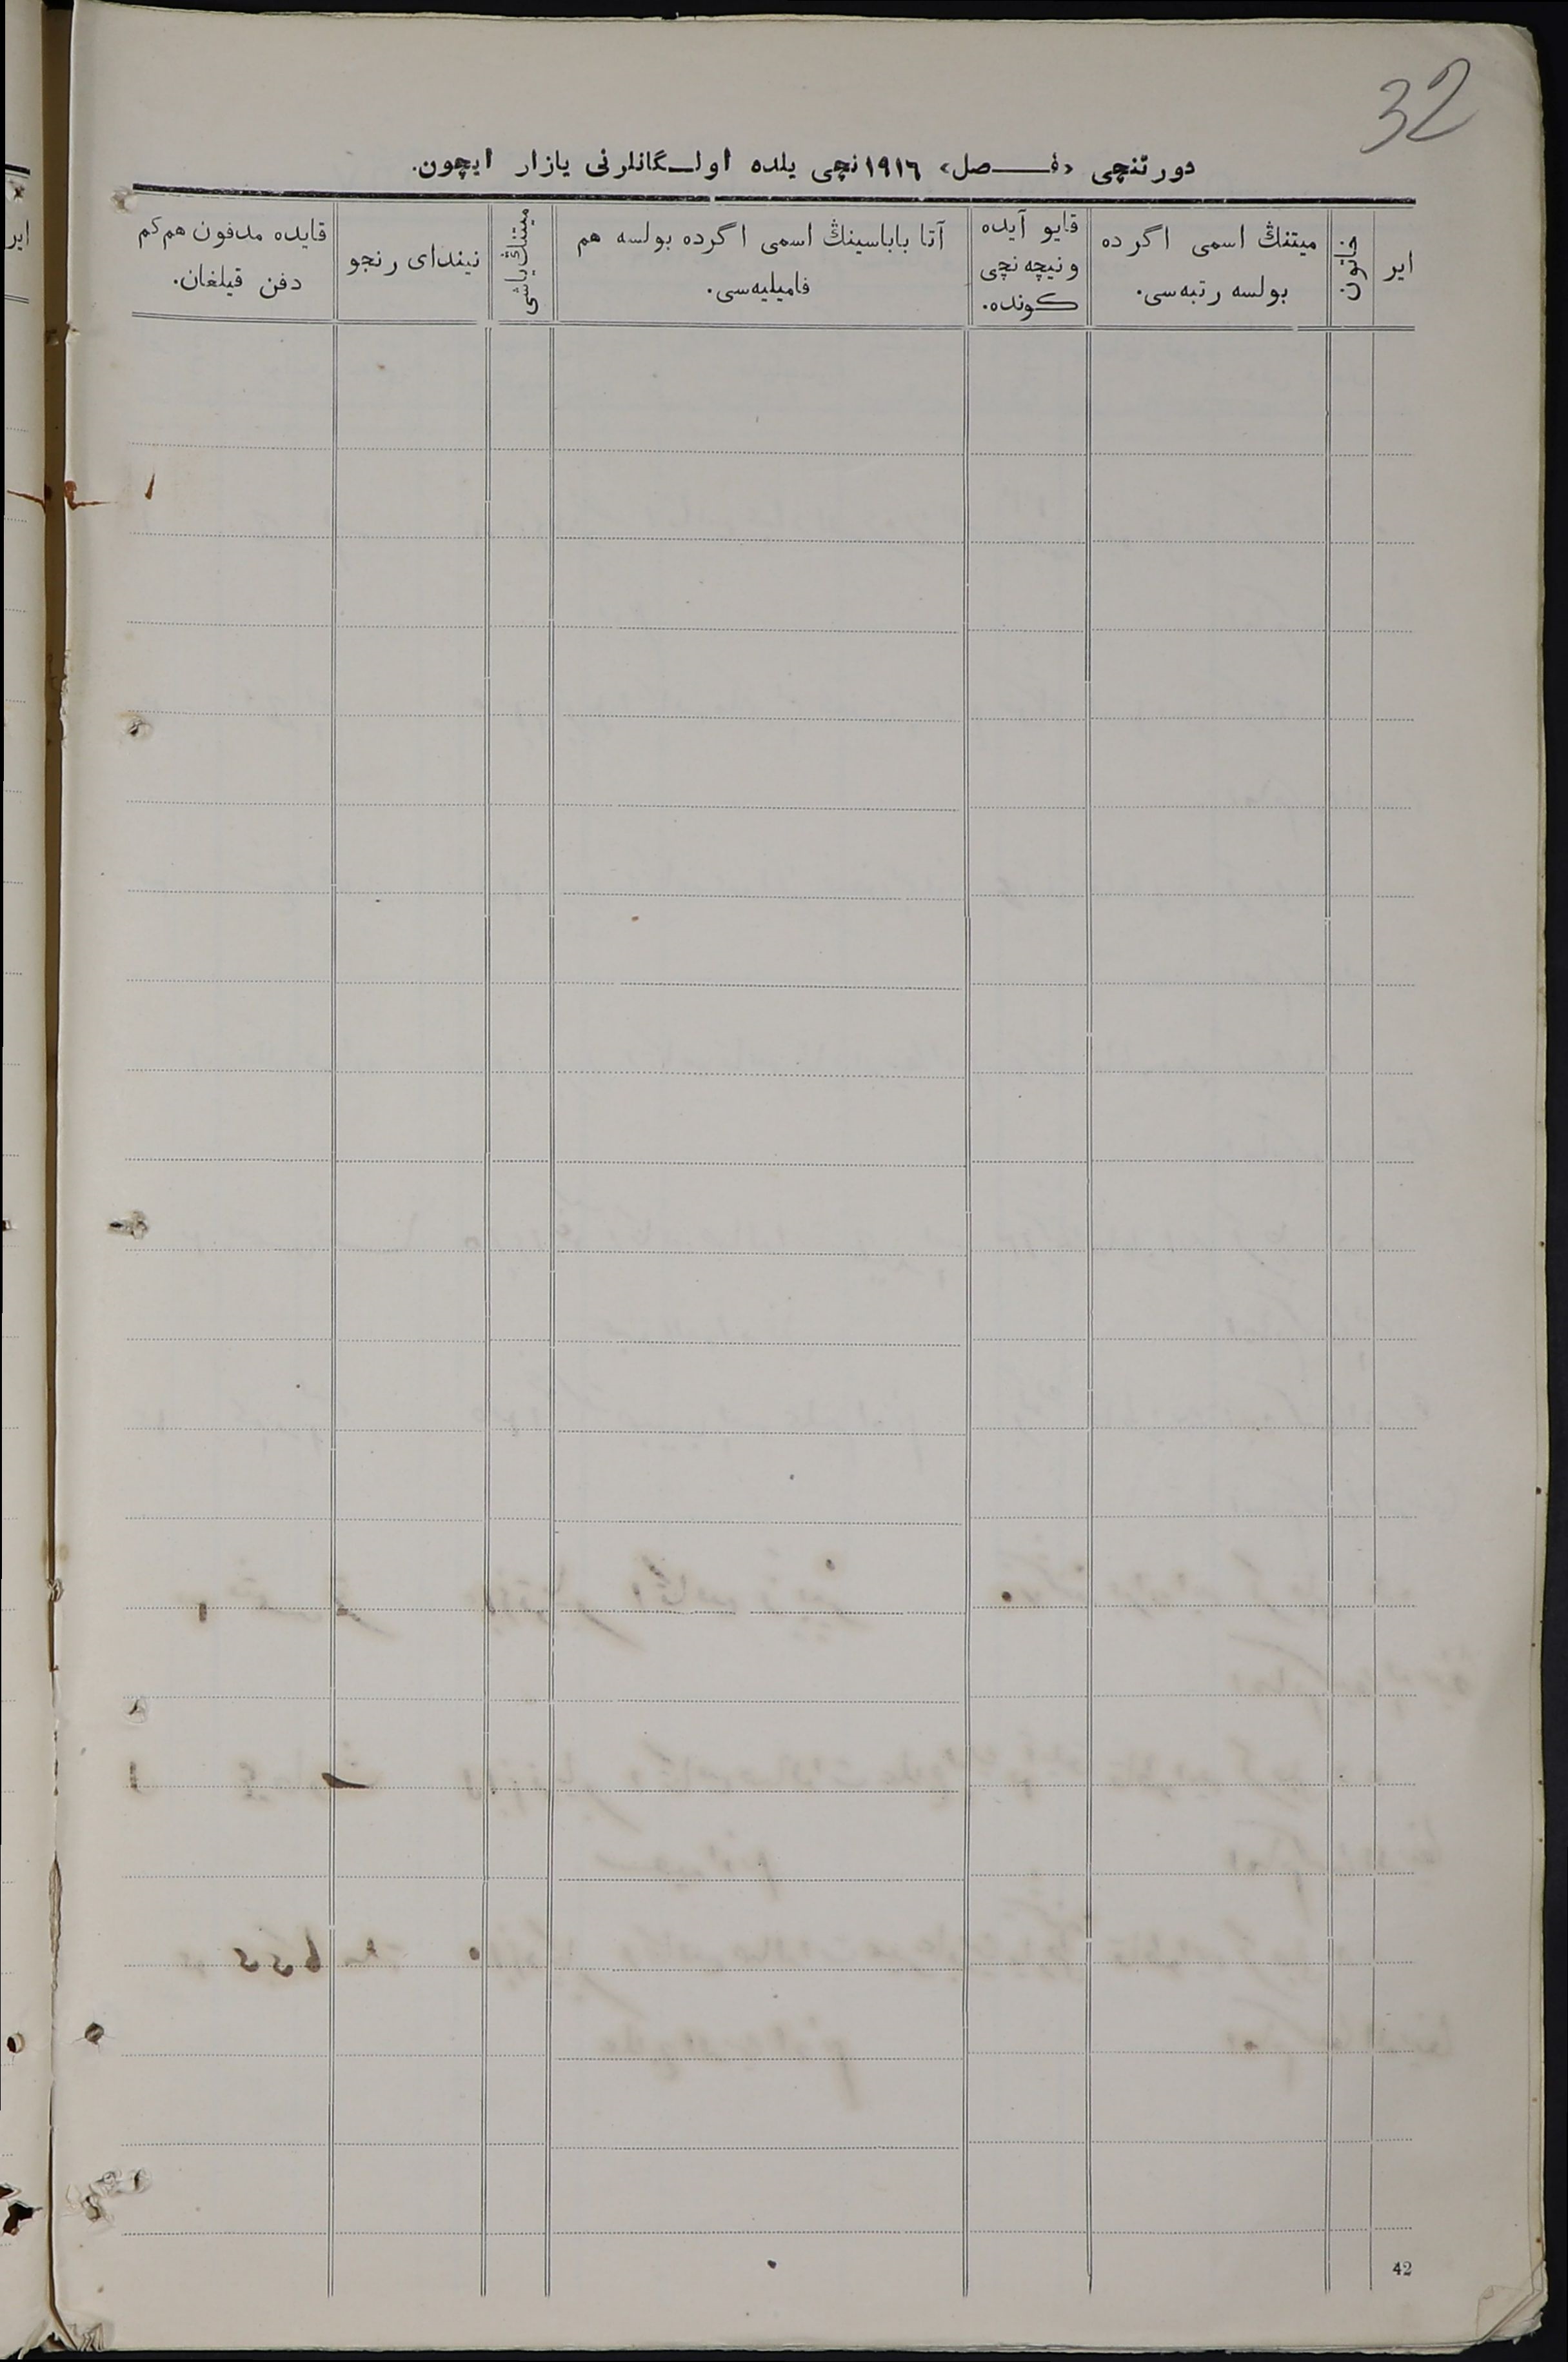 32
دورتنچی «فـــصل» ١٩١٦نچی یلده اولـــگانلرنی یازار ایچون.
ایر
خاتون
میتنڭ اسمی اگرده
بولسه رتبه‌سی.
قایو آیده
ونیچه نچی
کونده.
آتا باباسینڭ اسمی اگرده بولسه هم
فامیلیه‌سی.
میتنڭ یاشی
نیندای رنجو
قایده مدفون هم کم
دفن قیلغان.
42